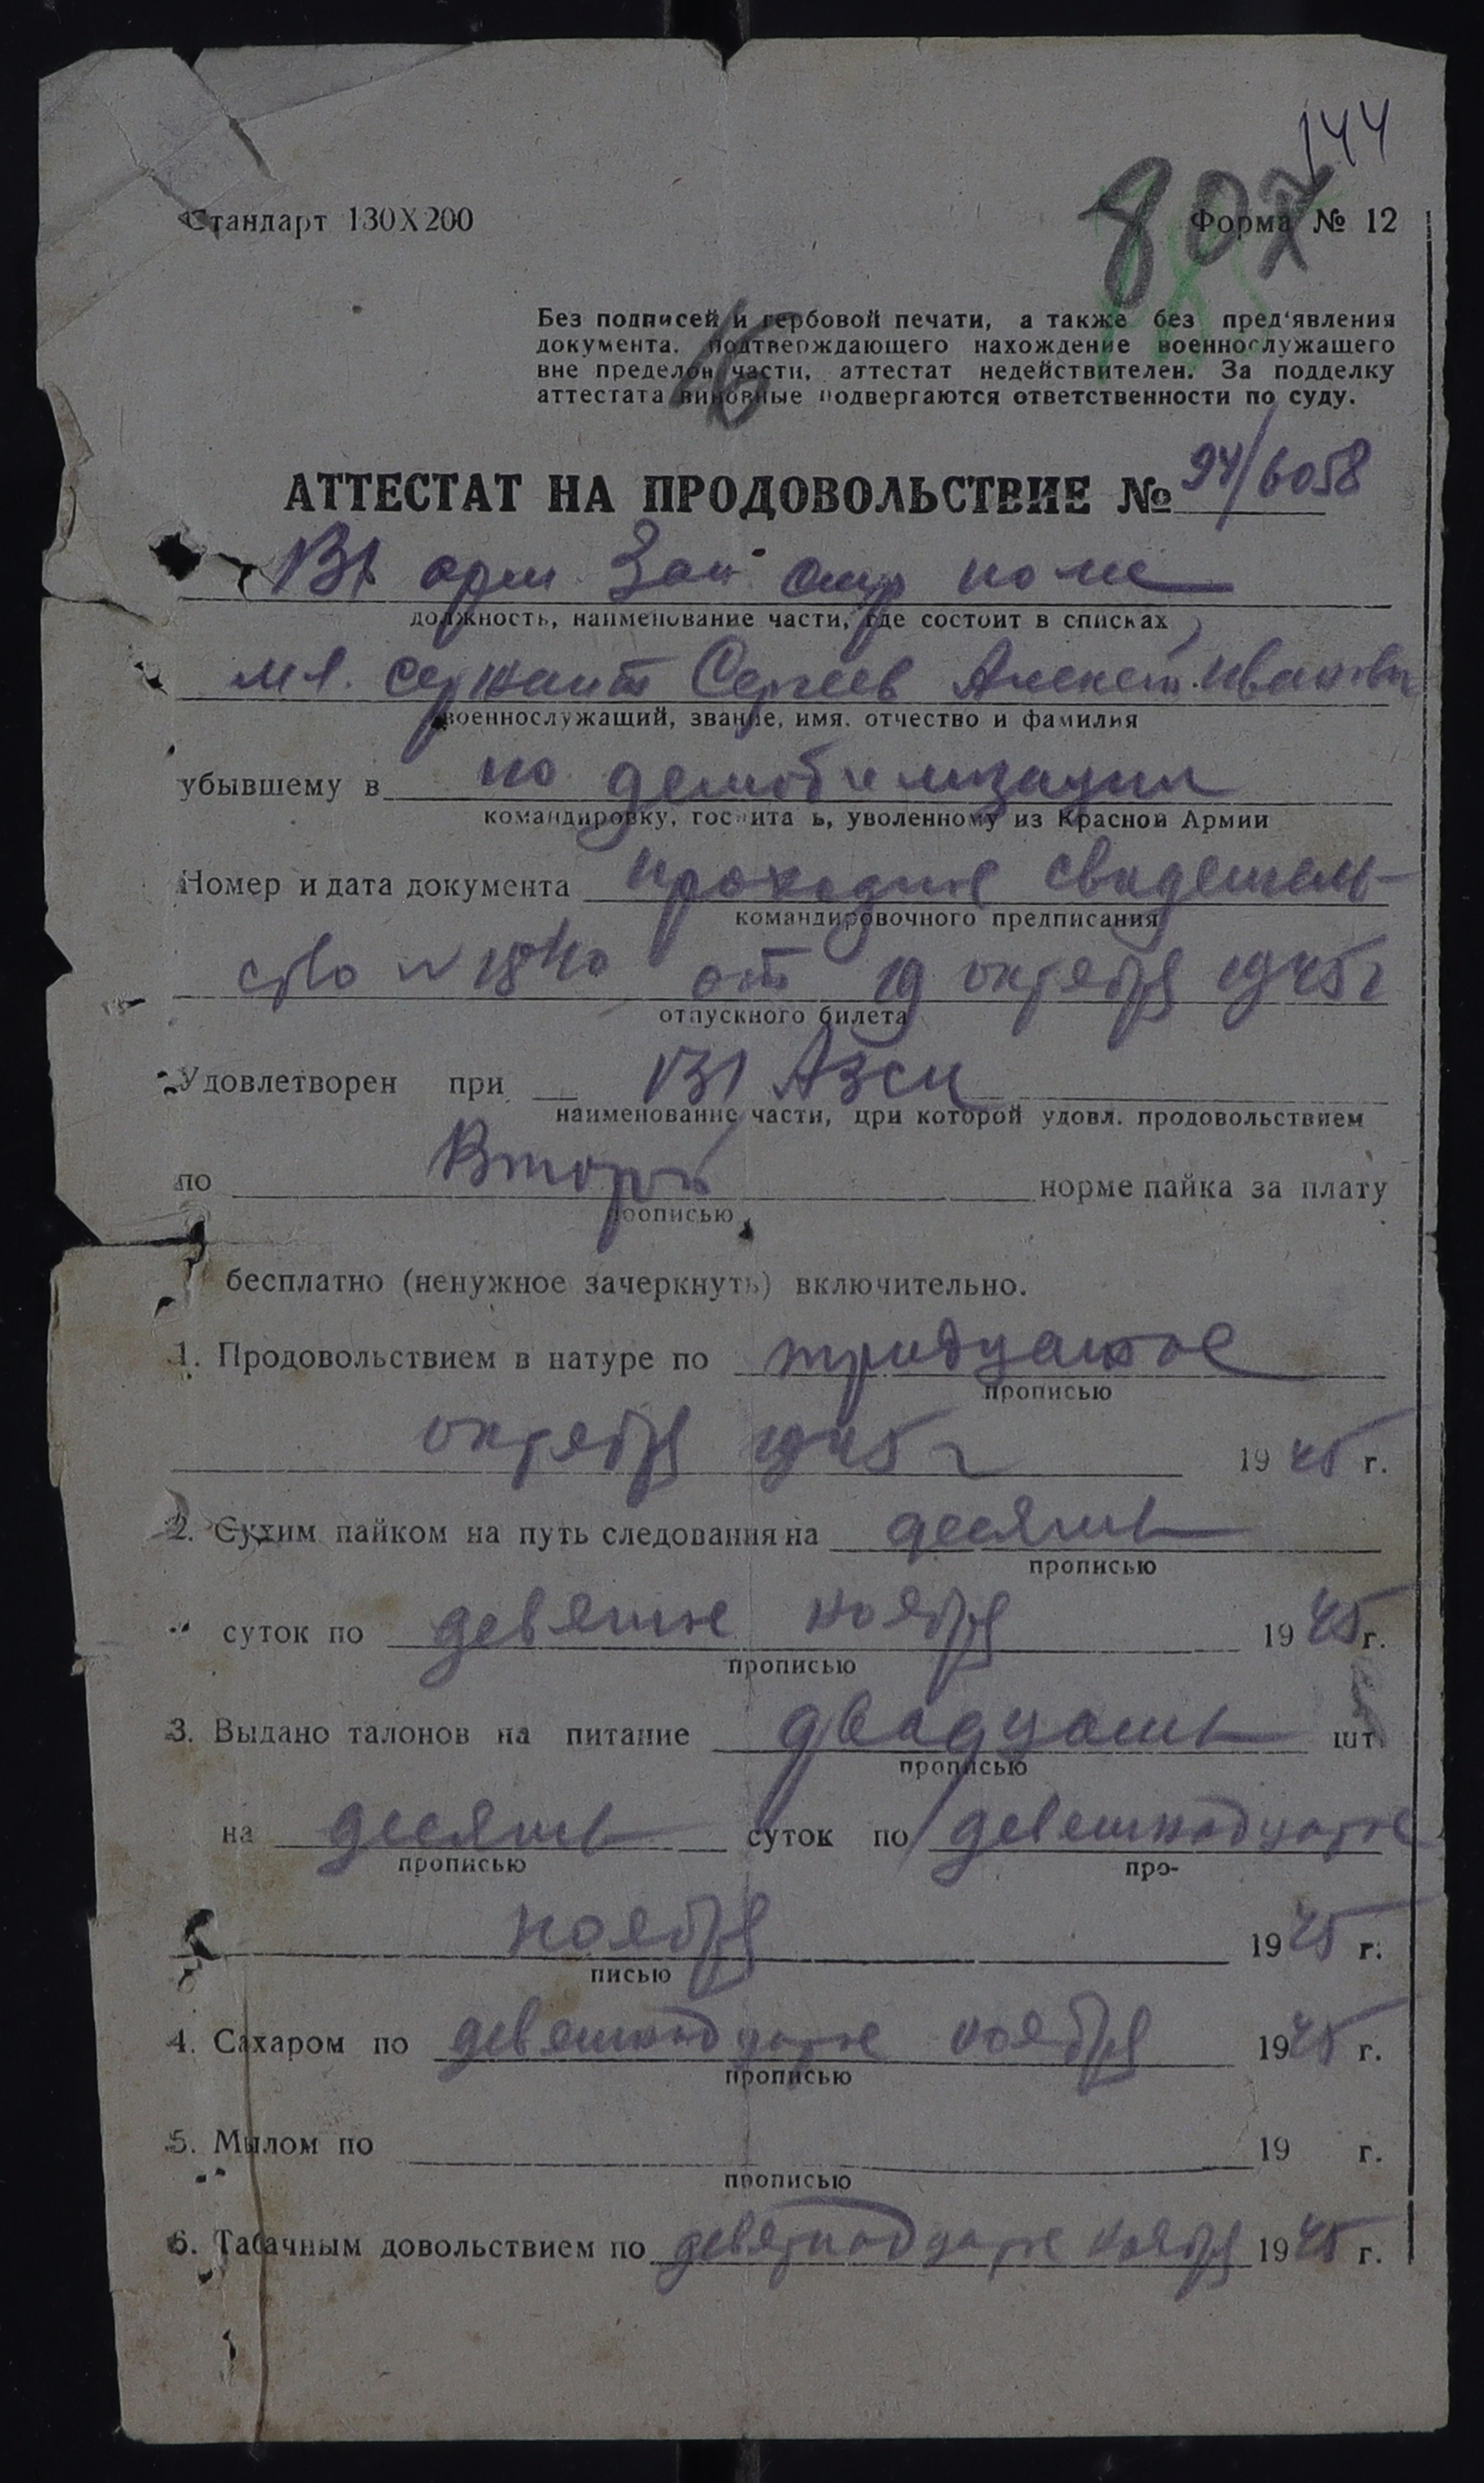 144
Стандарт 130X200
Форма № 12
Без подписей и гербовой печати, а также без пред'явления
документа, подтверждающего нахождение военнослужащего
вне пределов части, аттестат недействителен. За подделку
аттестата виновные подвергаются ответственности по суду.
АТТЕСТАТ НА ПРОДОВОЛЬСТВИЕ № 94/6058
арм Зап полк
должность, наименование части, где состоит в списках
мл. сержант Сергеев Алексей Иванович
военнослужащий, звание, имя, отчество и фамилия
убывшему в по демобилизации
командировку, госпиталь, уволенному из Красной Армии
Номер и дата документа проходное свидетель-
командировочного предписания
ство № 1840 от 19 октября 1945 г
отпускного билета
Удовлетворен при АЗСП
наименование части, при которой удовл. продовольствием
по Второй норме пайка за плату
прописью
бесплатно (ненужное зачеркнуть) включительно.
1. Продовольствием в натуре по тридцатое
прописью
октября 1945 г 1945 г.
2. Сухим пайком на путь следования на десять
прописью
суток по девятое ноября 1945 г.
прописью
3. Выдано талонов на питание двадцать шт.
прописью
на десять суток по девятнадцатое
прописью про-
ноября 1945 г.
писью
4. Сахаром по девятнадцатое ноября 1945 г.
прописью
5. Мылом по 19 г.
прописью
6. Табачным довольствием по девятнадцатое ноября 1945 г.